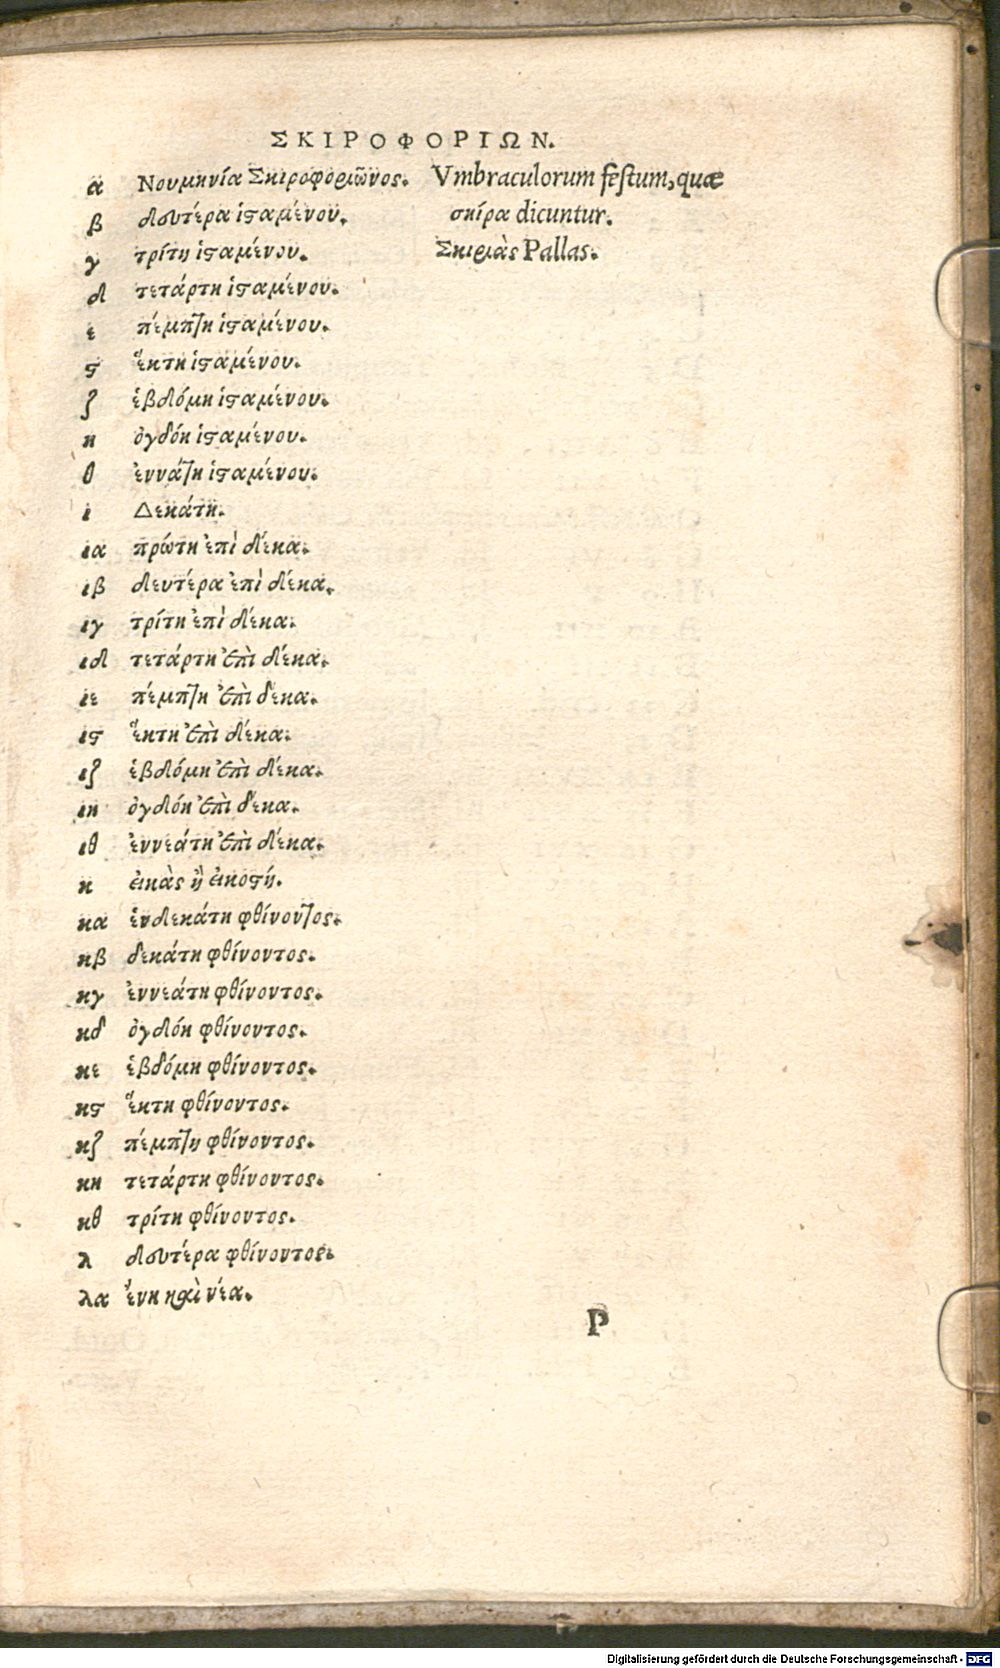 ΣΚΙΡΟΦΟΡΙΩΝ.
α Νουμηνία Σκιροφοριῶνος. Vmbraculorum festum, quæ
β δευτέρα ἱσαμένου. σκίρα dicuntur.
γ τρίτη ἱσαμένου. Σκιριὰς Pallas.
δ τετάρτη ἱσαμένου.
ε πέμπτη ἱσαμένου.
ϛ ἕκτη ἱσαμένου.
ζ ἑβδόμη ἱσαμένου.
η ὀγδόη ἱσαμένου.
θ ἐννάτη ἱσαμένου.
ι Δεκάτη.
ια πρώτη ἐπὶ δέκα.
ιβ δευτέρα ἐπὶ δέκα.
ιγ τρίτη ἐπὶ δέκα.
ιδ τετάρτη ἐπὶ δέκα.
ιε πέμπτη ἐπὶ δέκα.
ιϛ ἕκτη ἐπὶ δέκα.
ιζ ἑβδόμη ἐπὶ δέκα.
ιη ὀγδόη ἐπὶ δέκα.
ιθ ἐννεάτη ἐπὶ δέκα.
κ εἰκὰς ἢ εἰκοστή.
κα ἑνδεκάτη φθίνοντος.
κβ δεκάτη φθίνοντος.
κγ ἐννεάτη φθίνοντος.
κδ ὀγδόη φθίνοντος.
κε ἑβδόμη φθίνοντος.
κϛ ἕκτη φθίνοντος.
κζ πέμπτη φθίνοντος.
κη τετάρτη φθίνοντος.
κθ τρίτη φθίνοντος.
λ δευτέρα φθίνοντος.
λα ἔνη καὶ νέα.
P
Digitalisierung gefördert durch die Deutsche Forschungsgemeinschaft - DFG